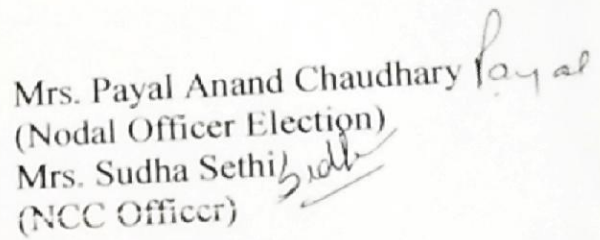 Mrs. Payal Anand Chaudhary Payal
(Nodal Officer Election)
Mrs. Sudha Sethi
(NCC Officer)